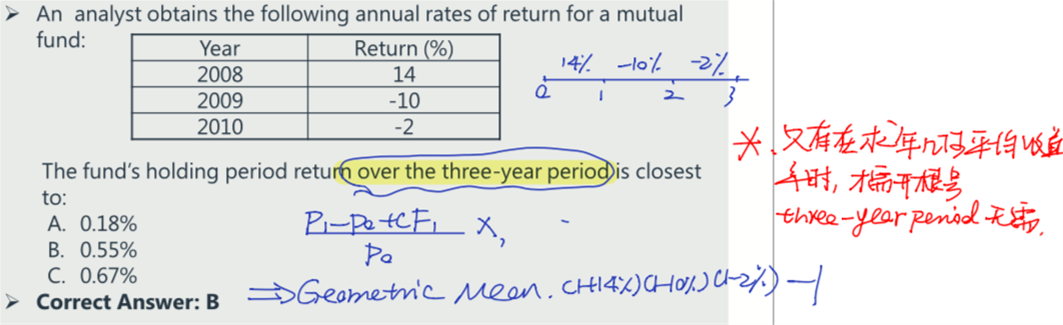 ➢ An analyst obtains the following annual rates of return for a mutual
fund:
Year Return (%)
2008 14
2009 -10
2010 -2
14% -10% -2%
0 1 2 3
The fund's holding period return over the three-year period is closest
to:
A. 0.18%
B. 0.55%
C. 0.67%
➢ Correct Answer: B
P₁-P₀+CF₁
P₀
X,
⇒Geometric Mean. (1+14%)(1-10%)(1-2%)-1
*. 只有在求年几何平均收益
率时, 才需开根号
three-year period 无需.